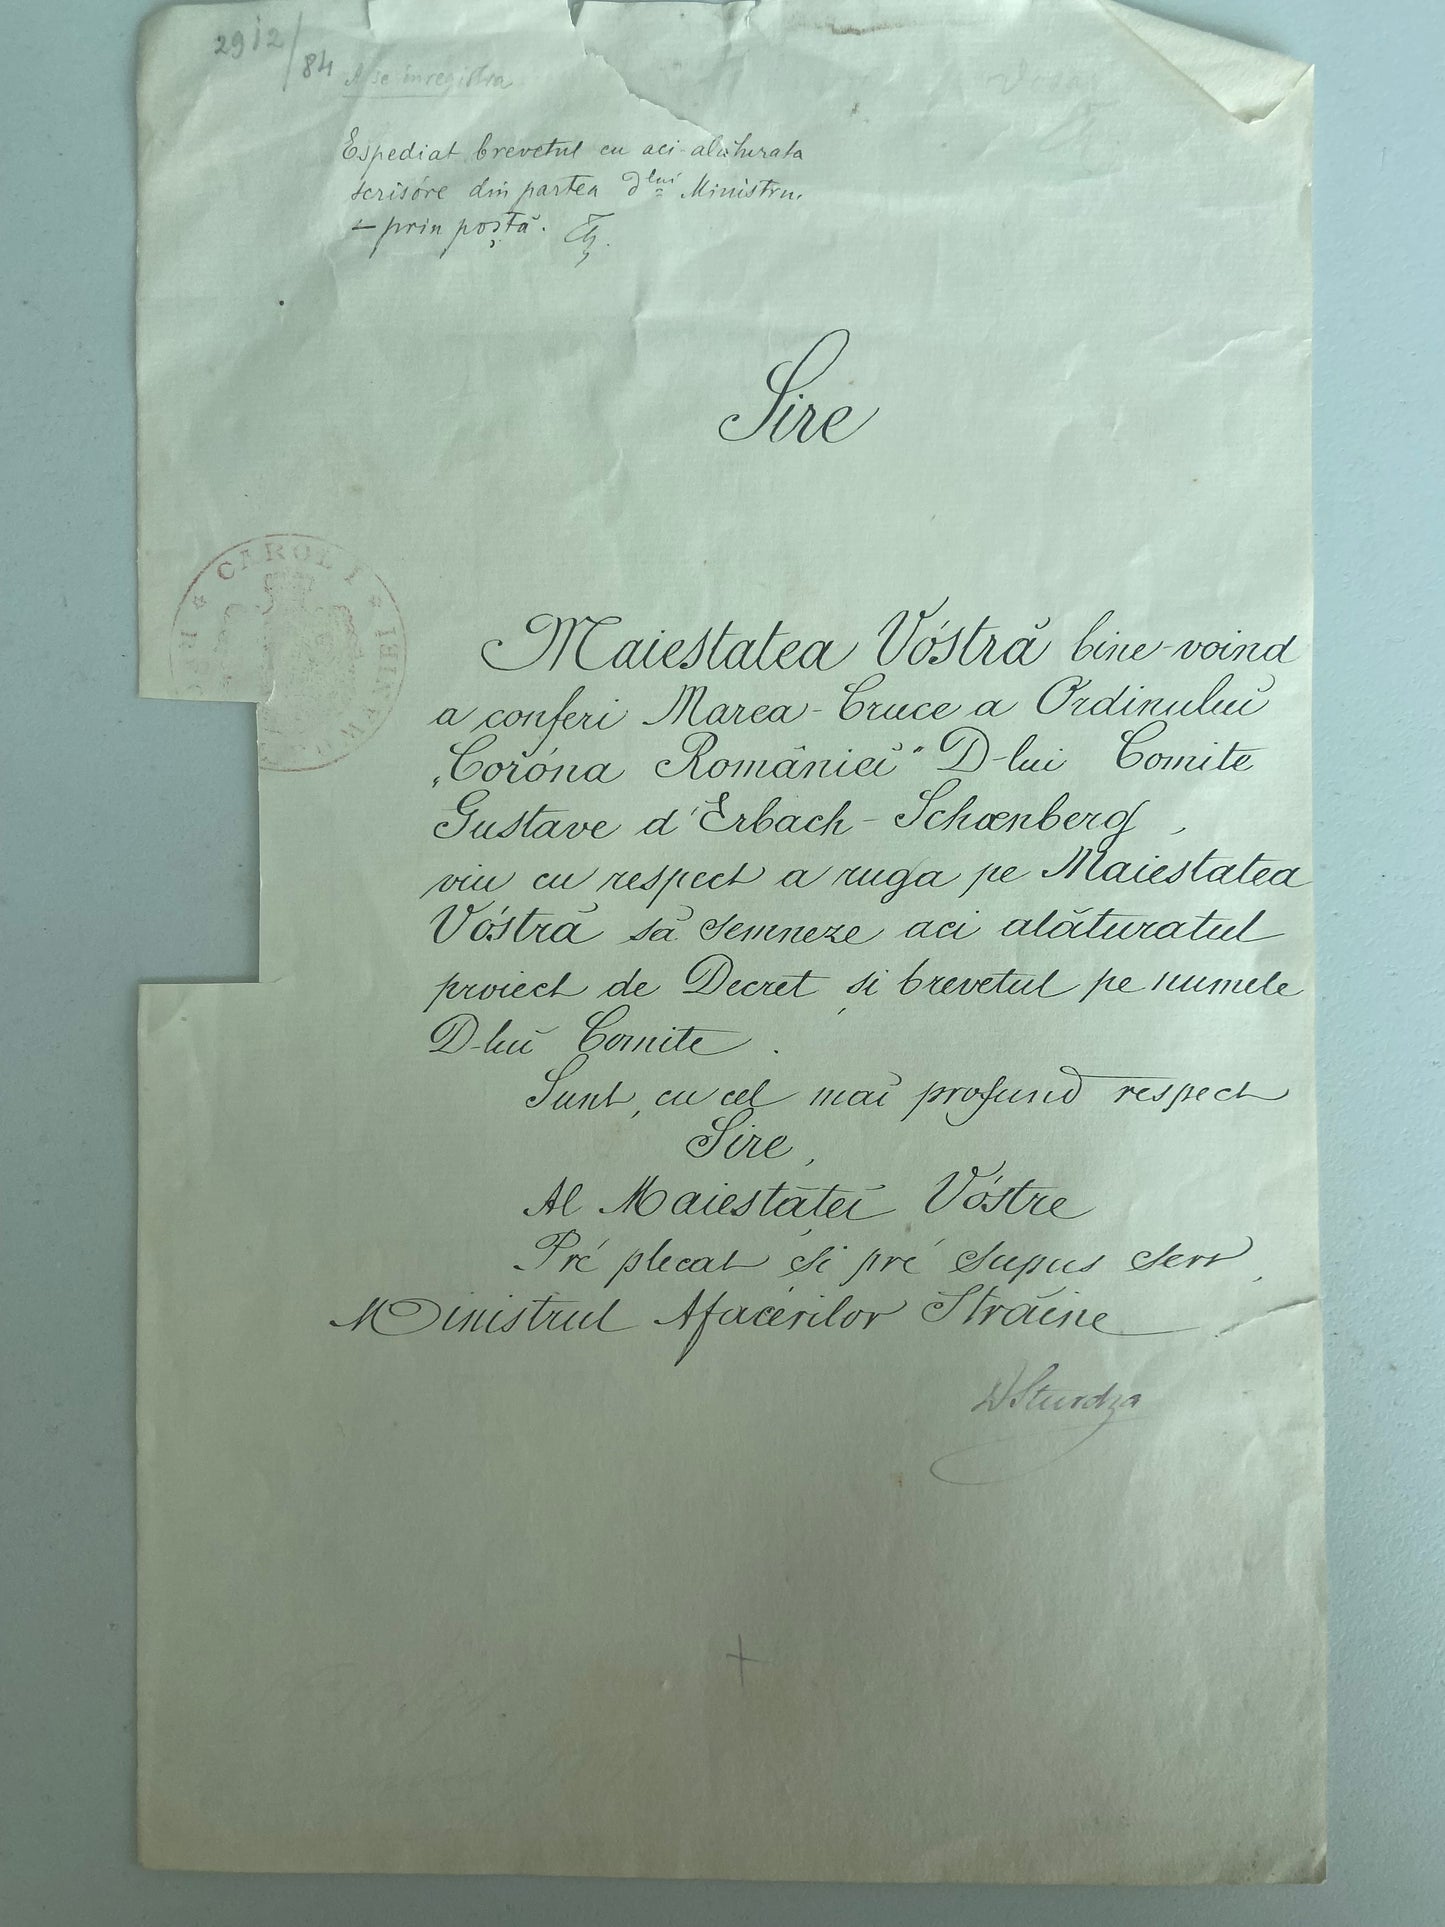 2912/84 A se înregistra
Espediat brevetul cu aci-alăturata
scrisóre din partea dlui Ministru.
– prin postă.
Sire
CAROL I
Maiestatea Vóstră bine-voind
a conferi Marea-Cruce a Ordinuluĭ
„Coróna Românieĭ" D-lui Comite
Gustave d'Erbach-Schœnberg,
viu cu respect a ruga pe Maiestatea
Vóstră să semneze aci alăturatul
proiect de Decret și brevetul pe numele
D-luĭ Comite.
Sunt, cu cel maĭ profund respect
Sire,
Al Maiestățeĭ Vóstre
Pré plecat și pré supus serv,
Ministrul Afacerilor Străine
DSturdza